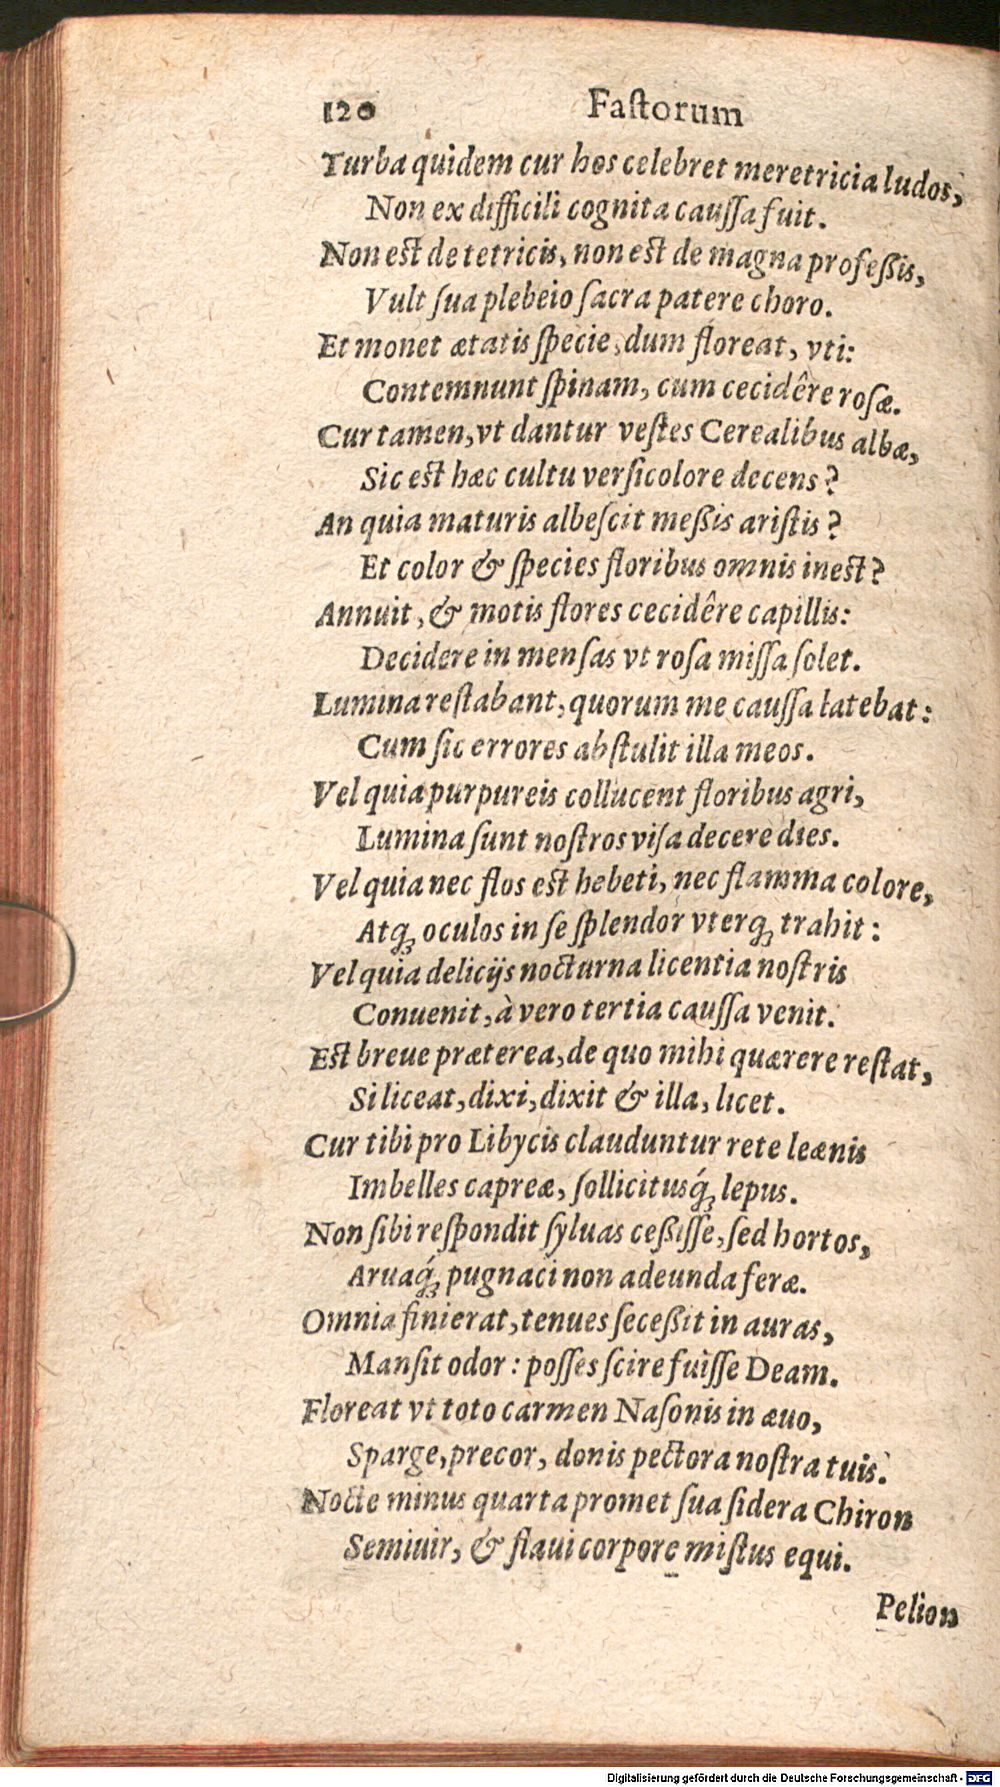 120 Faſtorum
Turba quidem cur hos celebret meretricia ludos,
Non ex difficili cognita cauſſa fuit.
Non eſt de tetricis, non eſt de magna profeßis,
Vult ſua plebeio ſacra patere choro.
Et monet ætatis ſpecie, dum floreat, vti:
Contemnunt ſpinam, cum cecidêre roſæ.
Cur tamen, vt dantur veſtes Cerealibus albæ,
Sic eſt hæc cultu verſicolore decens?
An quia maturis albeſcit meßis ariſtis?
Et color & ſpecies floribus omnis ineſt?
Annuit, & motis flores cecidêre capillis:
Decidere in menſas vt roſa miſſa ſolet.
Lumina reſtabant, quorum me cauſſa latebat:
Cum ſic errores abſtulit illa meos.
Vel quia purpureis collucent floribus agri,
Lumina ſunt noſtros viſa decere dies.
Vel quia nec flos eſt hebeti, nec flamma colore,
Atq; oculos in ſe ſplendor vterq; trahit:
Vel quia delicijs nocturna licentia noſtris
Conuenit, à vero tertia cauſſa venit.
Eſt breue præterea, de quo mihi quærere reſtat,
Si liceat, dixi, dixit & illa, licet.
Cur tibi pro Libycis clauduntur rete leænis
Imbelles capreæ, ſollicitusq́; lepus.
Non ſibi reſpondit ſyluas ceßiſſe, ſed hortos,
Aruaq́; pugnaci non adeunda feræ.
Omnia finierat, tenues ſeceßit in auras,
Manſit odor: poſſes ſcire fuiſſe Deam.
Floreat vt toto carmen Naſonis in æuo,
Sparge, precor, donis pectora noſtra tuis.
Nocte minus quarta promet ſua ſidera Chiron
Semiuir, & flaui corpore miſtus equi.
Pelion
Digitalisierung gefördert durch die Deutsche Forschungsgemeinschaft - DFG